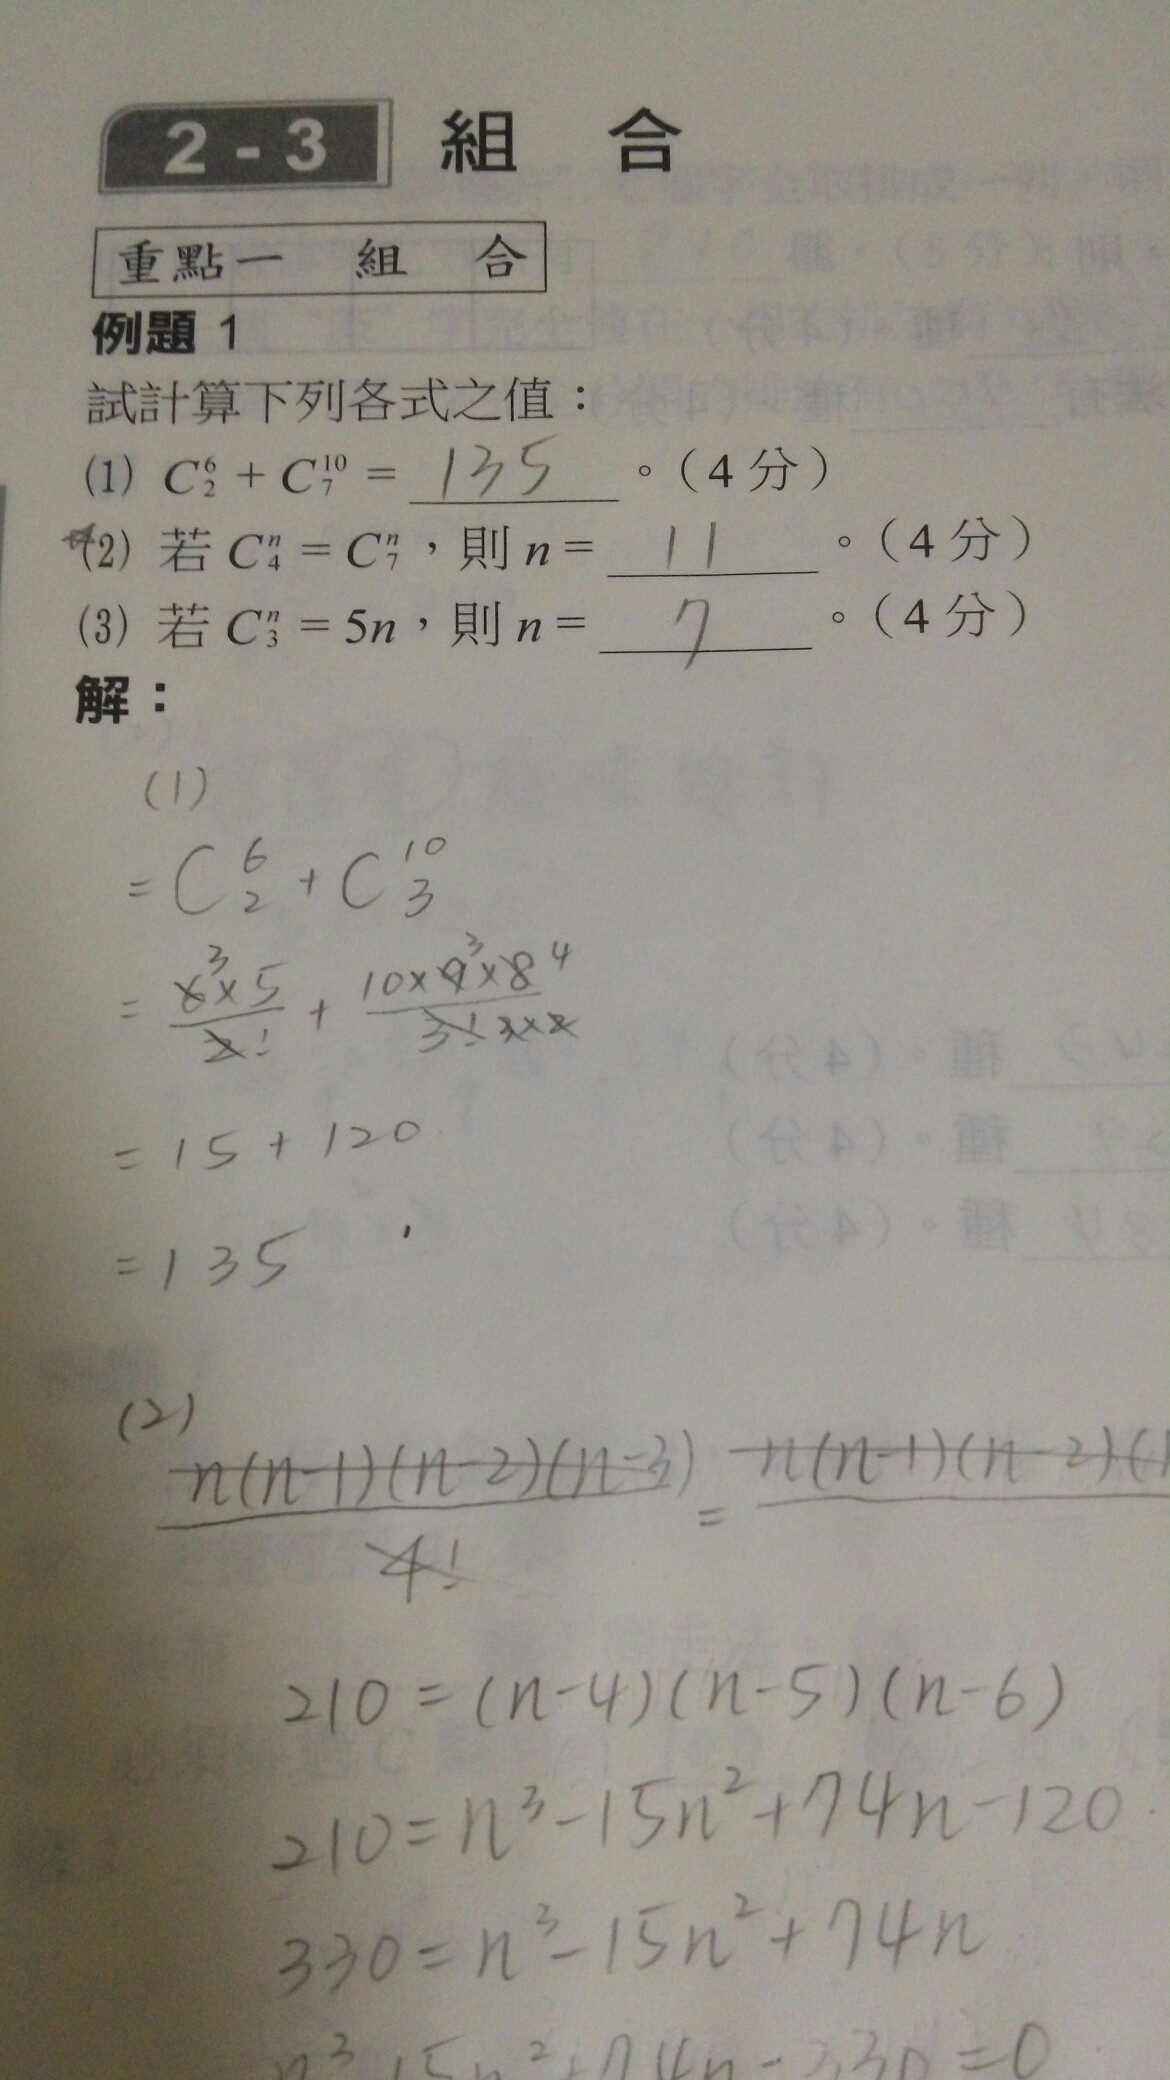 2-3 組合
重點一 組合
例題 1
試計算下列各式之值：
(1) C⁶₂ + C¹⁰₇ = 135 。（4 分）
(2) 若 Cⁿ₄ = Cⁿ₇，則 n = 11 。（4 分）
(3) 若 Cⁿ₃ = 5n，則 n = 7 。（4 分）
解：
(1)
= C⁶₂ + C¹⁰₃
= 6³×5/2! + 10×9³×8⁴/3!3×2
= 15 + 120
= 135
(2)
n(n-1)(n-2)(n-3)/4! = n(n-1)(n-2)(
210 = (n-4)(n-5)(n-6)
210 = n³-15n²+74n-120
330 = n³-15n²+74n
n³-15n²+74n-330=0